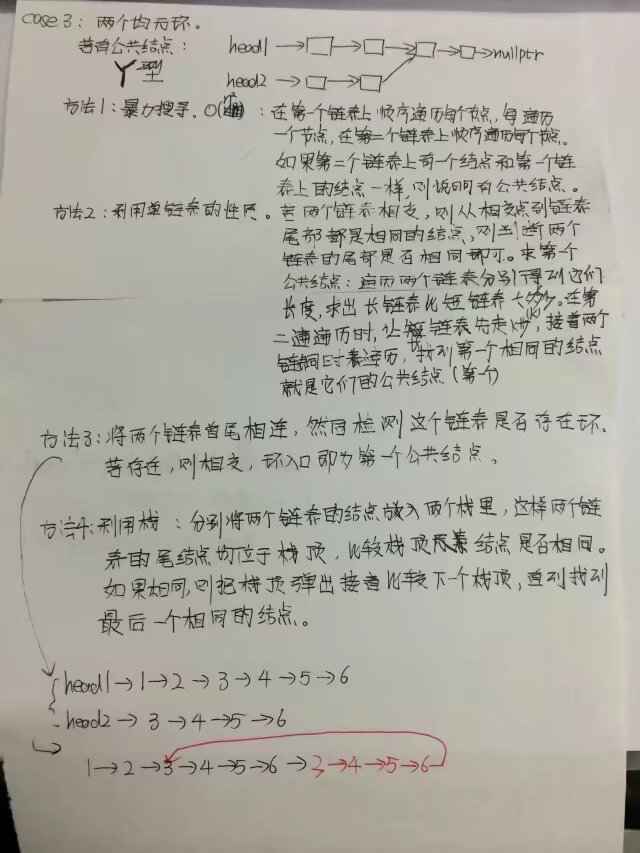 case 3: 两个均无环。
若有公共结点:
Y型
head1 → □ → □ → □ → □ → nullptr
head2 → □ → □
方法1:暴力搜寻。O(n²):在第一个链表上顺序遍历每个节点,每遍历
一个节点,在第二个链表上顺序遍历每个节点。
如果第二个链表上有一个结点和第一个链
表上的结点一样,则说明有公共结点。
方法2:利用单链表的性质。若两个链表相交,则从相交点到链表
尾部都是相同的结点,则判断两个
链表的尾部是否相同即可。求第一个
公共结点:遍历两个链表分别得到它们
长度,求出长链表比短链表长多少(k)。在第
二遍遍历时,让长链表先走k步,接着两个
链表同时遍历,找到第一个相同的结点
就是它们的公共结点(第一个)
方法3:将两个链表首尾相连,然后检测这个链表是否存在环。
若存在,则相交,环入口即为第一个公共结点。
方法4:利用栈:分别将两个链表的结点放入两个栈里,这样两个链
表的尾结点均位于栈顶,比较栈顶结点是否相同。
如果相同,则把栈顶弹出接着比较下一个栈顶,直到找到
最后一个相同的结点。
head1→1→2→3→4→5→6
head2→3→4→5→6
1→2→3→4→5→6→3→4→5→6